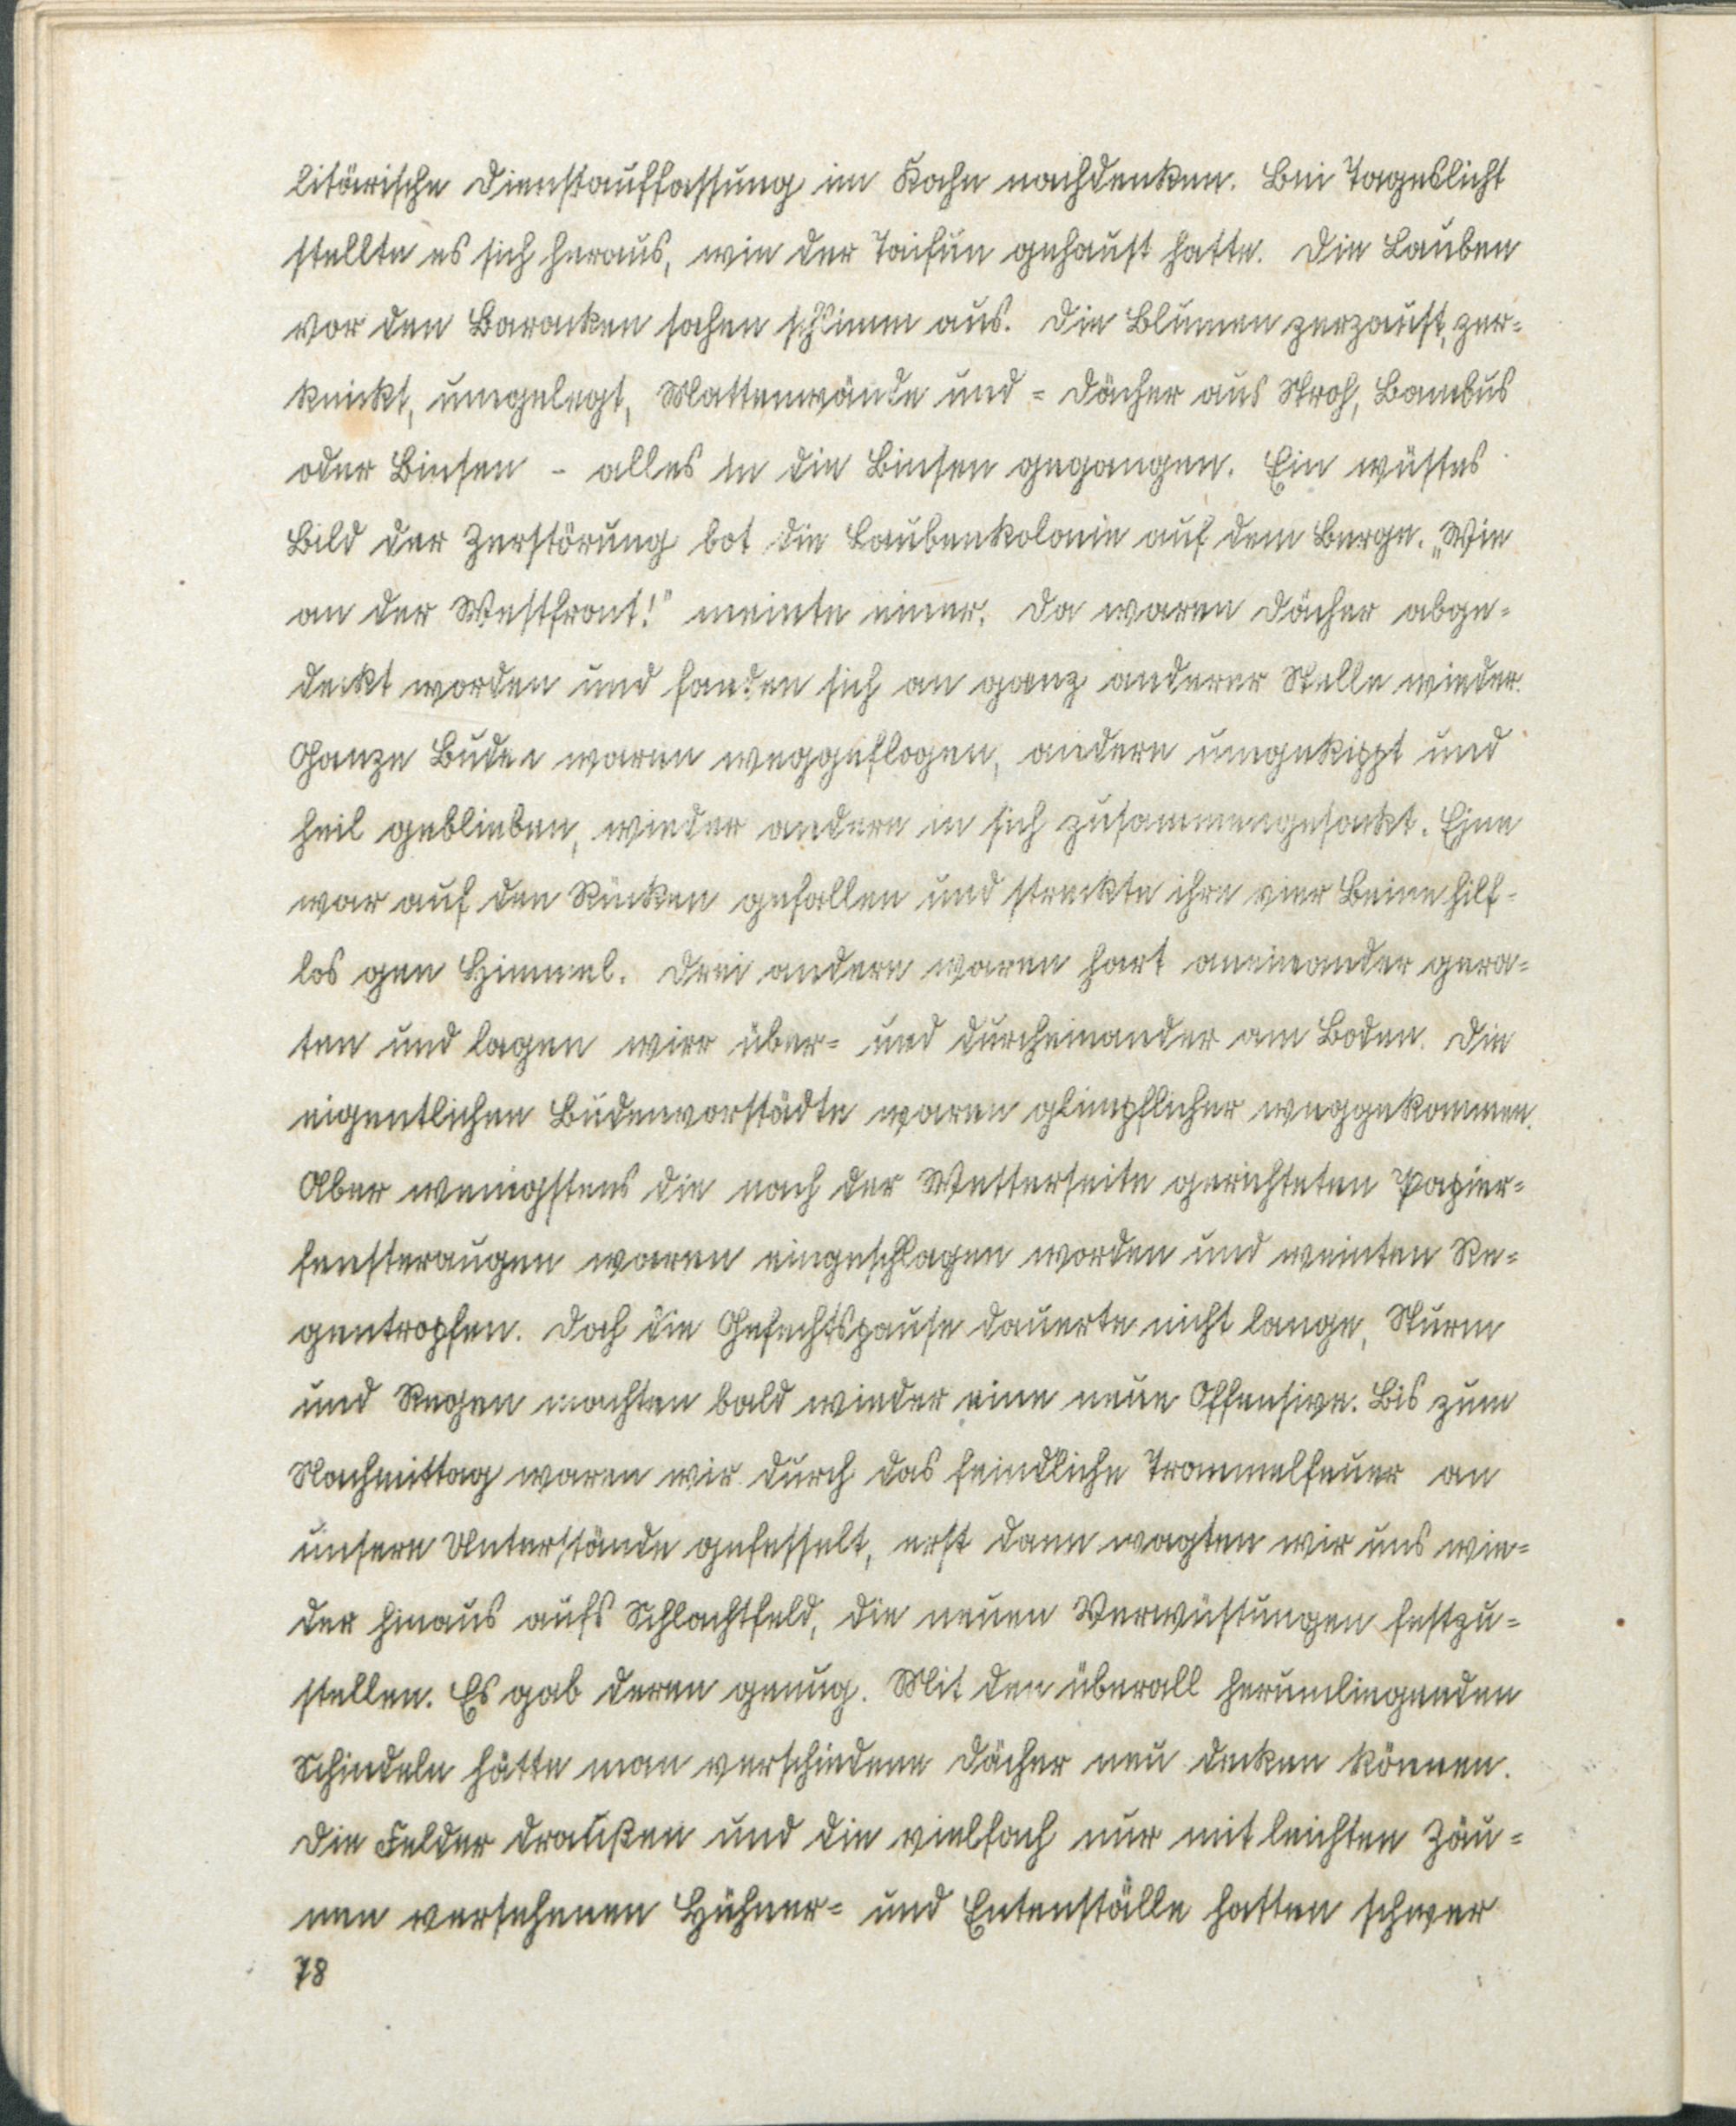 litärische Dienstauffassung im Kahn nachdenken. Bei Tageslicht
stellte es sich heraus, wie der Taifun gehaust hatte. Die Lauben
vor den Baracken sahen schlimm aus. Die Blumen zerzaust, zer=
knickt, umgelegt, Mattenwände und = Dächer aus Stroh, Bambus
oder Binsen - alles in die Binsen gegangen. Ein wüstes
Bild der Zerstörung bot die Laubenkolonie auf dem Berge. „Wie
an der Westfront!" meinte einer. Da waren Dächer abge=
deckt worden und fanden sich an ganz anderer Stelle wieder.
Ganze Buden waren weggeflogen, andere umgekippt und
heil geblieben, wieder andere in sich zusammengesackt. Eine
war auf den Rücken gefallen und streckte ihre vier Beine hilf=
los gen Himmel. Drei andere waren hart aneinander gera=
ten und lagen wirr über= und durcheinander am Boden. Die
eigentlichen Budenvorstädte waren glimpflicher weggekommen.
Aber wenigstens die nach der Wetterseite gerichteten Papier=
fensteraugen waren eingeschlagen worden und weinten Re=
gentropfen. Doch die Gefechtspause dauerte nicht lange, Sturm
und Regen machten bald wieder eine neue Offensive. Bis zum
Nachmittag waren wir durch das feindliche Trommelfeuer an
unsere Unterstände gefesselt, erst dann wagten wir uns wie=
der hinaus aufs Schlachtfeld, die neuen Verwüstungen festzu=
stellen. Es gab deren genug. Mit den überall herumliegenden
Schindeln hätte man verschiedene Dächer neu decken können.
Die Felder draußen und die vielfach nur mit leichten Zäu=
nen versehenen Hühner= und Entenställe hatten schwer
78